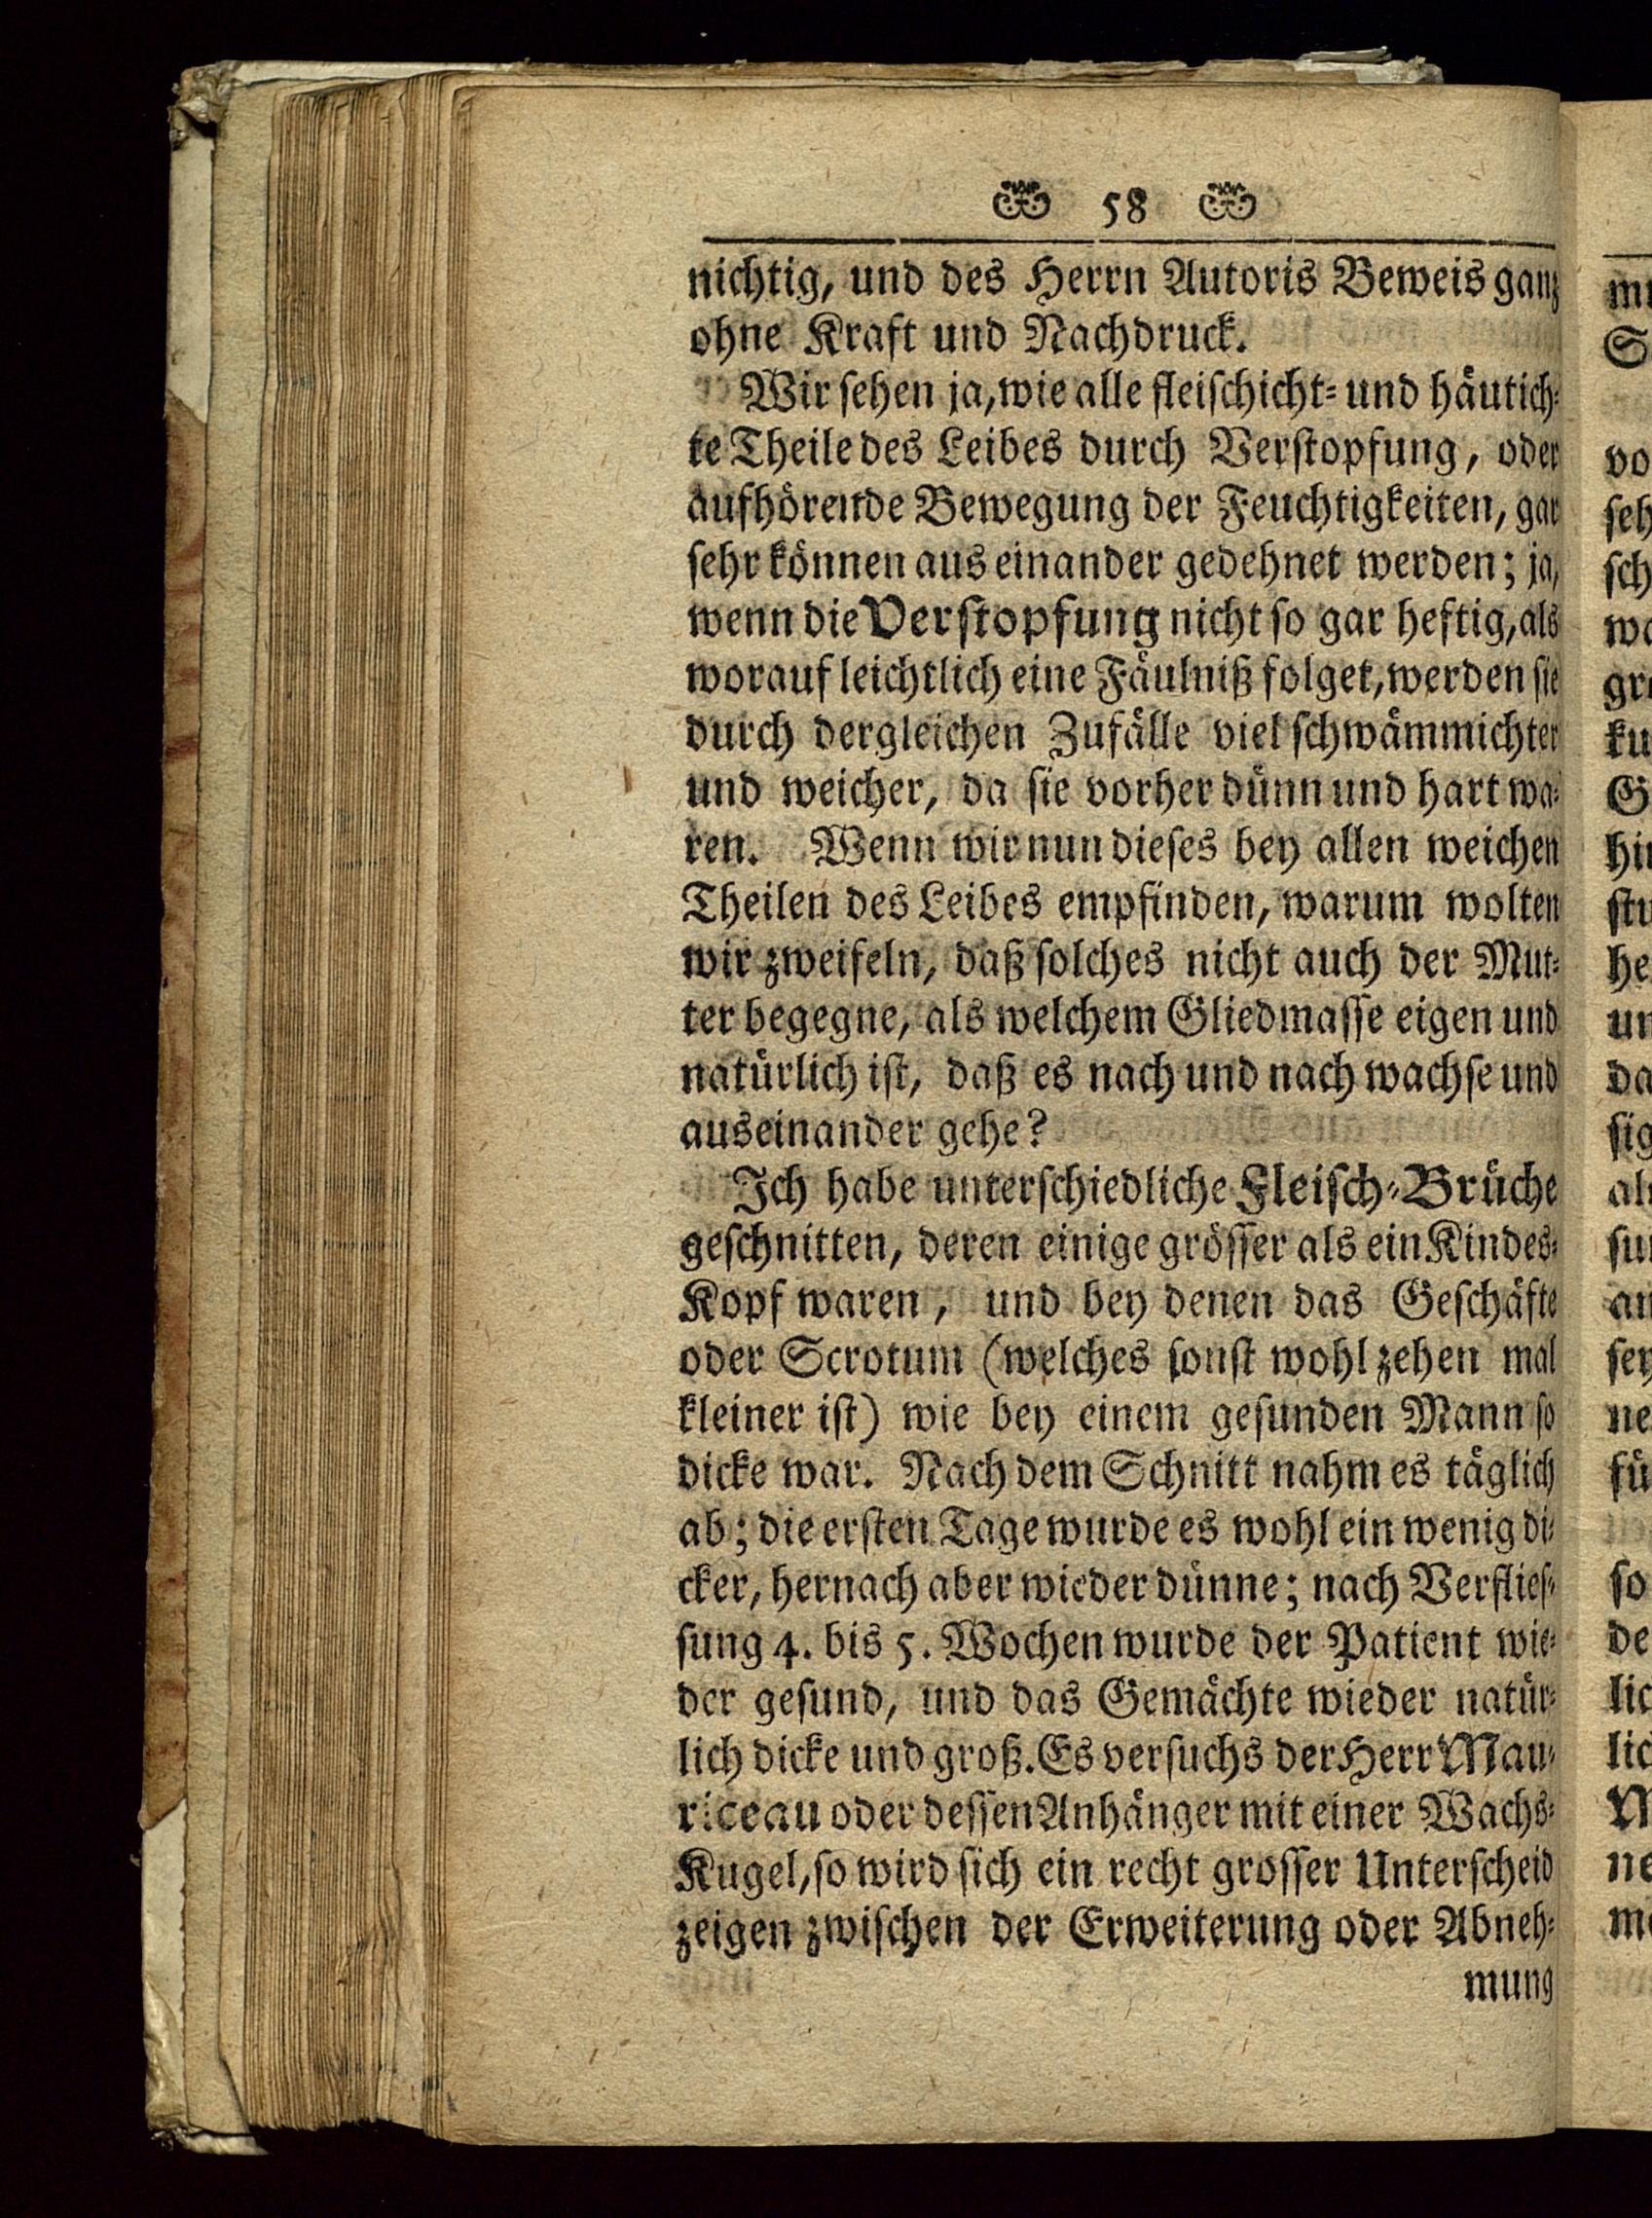 58
nichtig, und des Herrn Autoris Beweis ganz
ohne Kraft und Nachdruck.
Wir sehen ja, wie alle fleischicht- und häutich-
te Theile des Leibes durch Verstopfung, oder
aufhörende Bewegung der Feuchtigkeiten, gar
sehr können aus einander gedehnet werden; ja,
wenn die Verstopfung nicht so gar heftig, als
worauf leichtlich eine Fäulniß folget, werden sie
durch dergleichen Zufälle viel schwämmichter
und weicher, da sie vorher dünn und hart wa-
ren. Wenn wir nun dieses bey allen weichen
Theilen des Leibes empfinden, warum wolten
wir zweifeln, daß solches nicht auch der Mut-
ter begegne, als welchem Gliedmasse eigen und
natürlich ist, daß es nach und nach wachse und
auseinander gehe?
Ich habe unterschiedliche Fleisch-Brüche
geschnitten, deren einige grösser als ein Kindes-
Kopf waren, und bey denen das Geschäfte
oder Scrotum (welches sonst wohl zehen mal
kleiner ist) wie bey einem gesunden Mann so
dicke war. Nach dem Schnitt nahm es täglich
ab; die ersten Tage wurde es wohl ein wenig di-
cker, hernach aber wieder dünne; nach Verflies-
sung 4. bis 5. Wochen wurde der Patient wie-
der gesund, und das Gemächte wieder natür-
lich dicke und groß. Es versuchs der Herr Mau-
riceau oder dessen Anhänger mit einer Wachs-
Kugel, so wird sich ein recht grosser Unterscheid
zeigen zwischen der Erweiterung oder Abneh-
mung